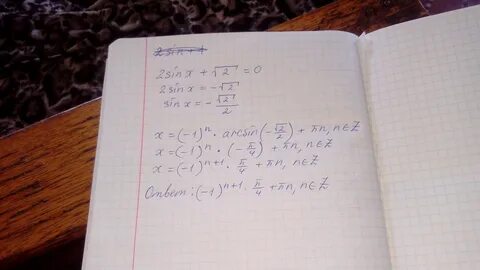 2sin+1
2sinx + √2 = 0
2sinx = -√2
sinx = -√2/2
x = (-1)ⁿ · arcsin(-√2/2) + πn, n∈Z
x = (-1)ⁿ · (-π/4) + πn, n∈Z
x = (-1)ⁿ⁺¹ · π/4 + πn, n∈Z
Ответ: (-1)ⁿ⁺¹ · π/4 + πn, n∈Z